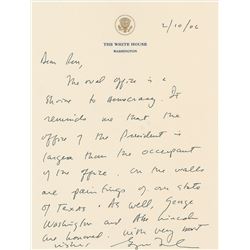 THE WHITE HOUSE
WASHINGTON
2/10/06
Dear
The oval office is a
Shrine to Democracy. It
reminds me that the
office of the President is
larger than the occupant
of the office. On the walls
are paintings of our state
of Texas. As well, George
Washington and Abe Lincoln
are honored. With very best
wishes